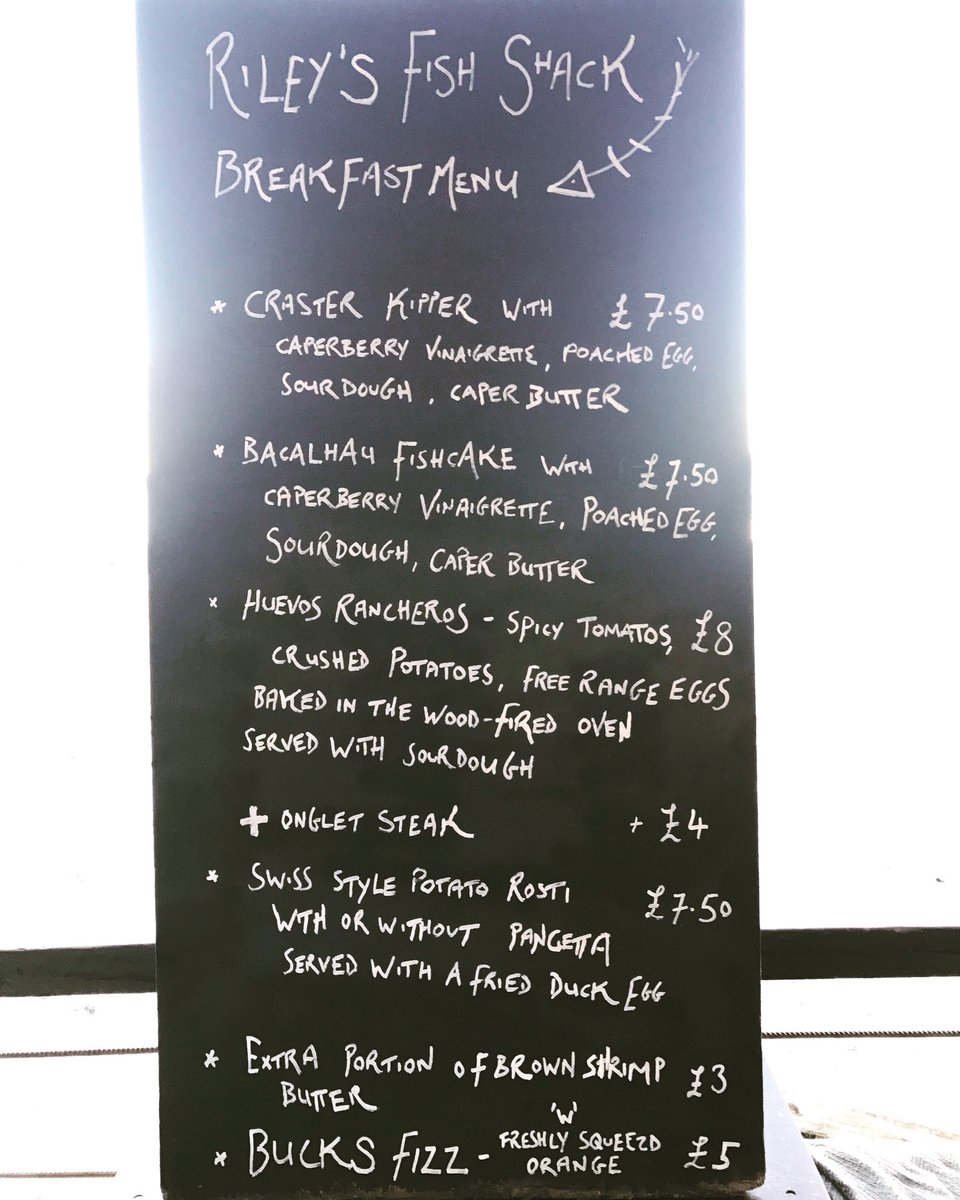 RILEY'S FISH SHACK
BREAKFAST MENU
* CRASTER KIPPER WITH £7.50
CAPERBERRY VINAIGRETTE, POACHED EGG,
SOURDOUGH, CAPER BUTTER
* BACALHAU FISHCAKE WITH £7.50
CAPERBERRY VINAIGRETTE, POACHED EGG,
SOURDOUGH, CAPER BUTTER
* HUEVOS RANCHEROS - SPICY TOMATOS, £8
CRUSHED POTATOES, FREE RANGE EGGS
BAKED IN THE WOOD-FIRED OVEN
SERVED WITH SOURDOUGH
+ ONGLET STEAK + £4
* SWISS STYLE POTATO ROSTI £7.50
WTH OR WITHOUT PANCETTA
SERVED WITH A FRIED DUCK EGG
* EXTRA PORTION OF BROWN SHRIMP £3
BUTTER
* BUCKS FIZZ - 'W' £5
FRESHLY SQUEEZD
ORANGE